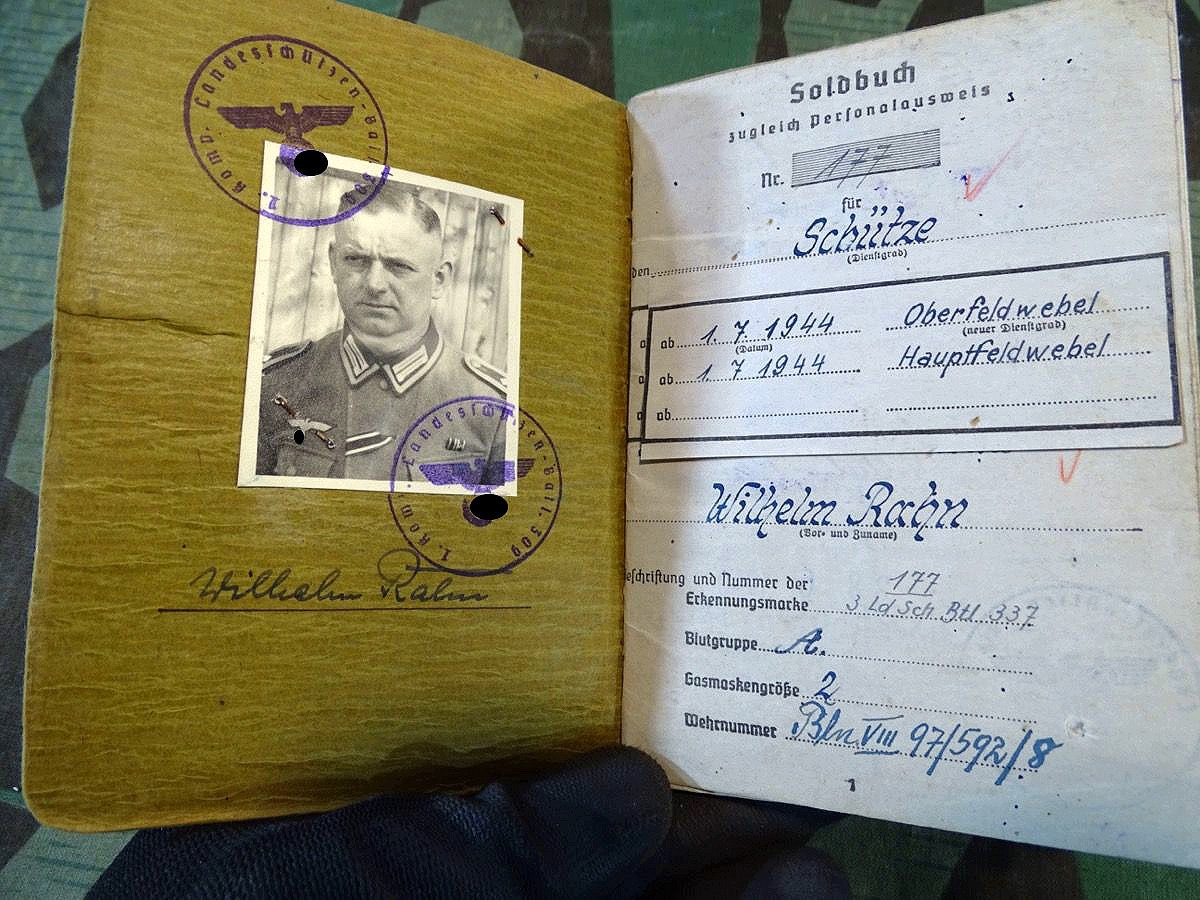 2. Komp. Landesschützen-Batl. 309
1. Komp. Landesschützen-Batl. 309
Wilhelm Rahn
Soldbuch
zugleich Personalausweis
Nr. 177
für
den Schütze
(Dienstgrad)
ab 1. 7. 1944 Oberfeldwebel
(Datum) (neuer Dienstgrad)
ab 1. 7 1944 Hauptfeldwebel
ab
Wilhelm Rahn
(Vor- und Zuname)
eschriftung und Nummer der 177
Erkennungsmarke 3 Ld Sch Btl 337
Blutgruppe A.
Gasmaskengröße 2
Wehrnummer Bln VIII 97/592/8
1